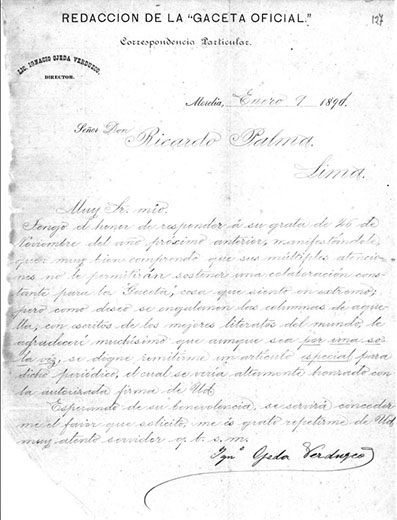 REDACCION DE LA "GACETA OFICIAL."
127
Correspondencia Particular.
LIC. IGNACIO OJEDA VERDUZCO,
DIRECTOR.
Morelia, Enero 9 1891.
Señor Don
Ricardo Palma.
Lima.
Muy Sr. mio:
Tengo el honor de responder á su grata de 26 de
Noviembre del año próximo anterior, manifestándole
que: muy bien comprendo que sus múltiples atencio-
nes no le permitirán sostener una colaboración cons-
tante para la "Gaceta", cosa que siento en extremo;
pero como deseo se engalanen las columnas de aque-
lla, con escritos de los mejores literatos del mundo, le
agradeceré muchísimo que aunque sea por una so-
la vez, se digne remitirme un artículo especial para
dicho periódico, el cual se vería altamente honrado con
la autorizada firma de Ud.
Esperando de su benevolencia, se servirá conceder-
me el favor que solicito, me es grato repetirme de Ud.
muy atento servidor q. t. s. m.
Ign.º Ojeda Verduzco